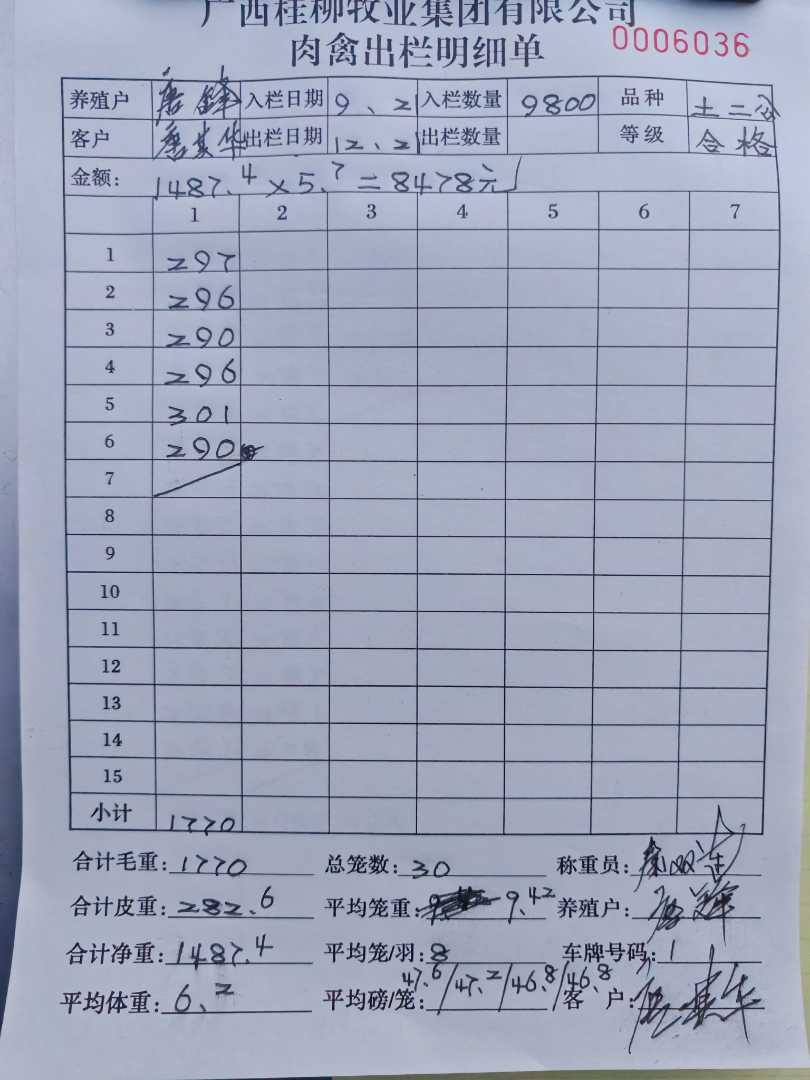 广西桂柳牧业集团有限公司
肉禽出栏明细单 0006036
养殖户 唐 入栏日期 9、21 入栏数量 9800 品种 土二公
客户 唐其华 出栏日期 12、21 出栏数量 等级 合格
金额: 1487.4×5.7=8478元
1 2 3 4 5 6 7
1 297
2 296
3 290
4 296
5 301
6 290
7
8
9
10
11
12
13
14
15
小计 1770
合计毛重: 1770 总笼数: 30 称重员:
合计皮重: 282.6 平均笼重: 9.42 养殖户: 唐
合计净重: 1487.4 平均笼/羽: 8 车牌号码:
平均体重: 6.2 平均磅/笼: 47.6/47.2/46.8/46.8 客户: 唐其华